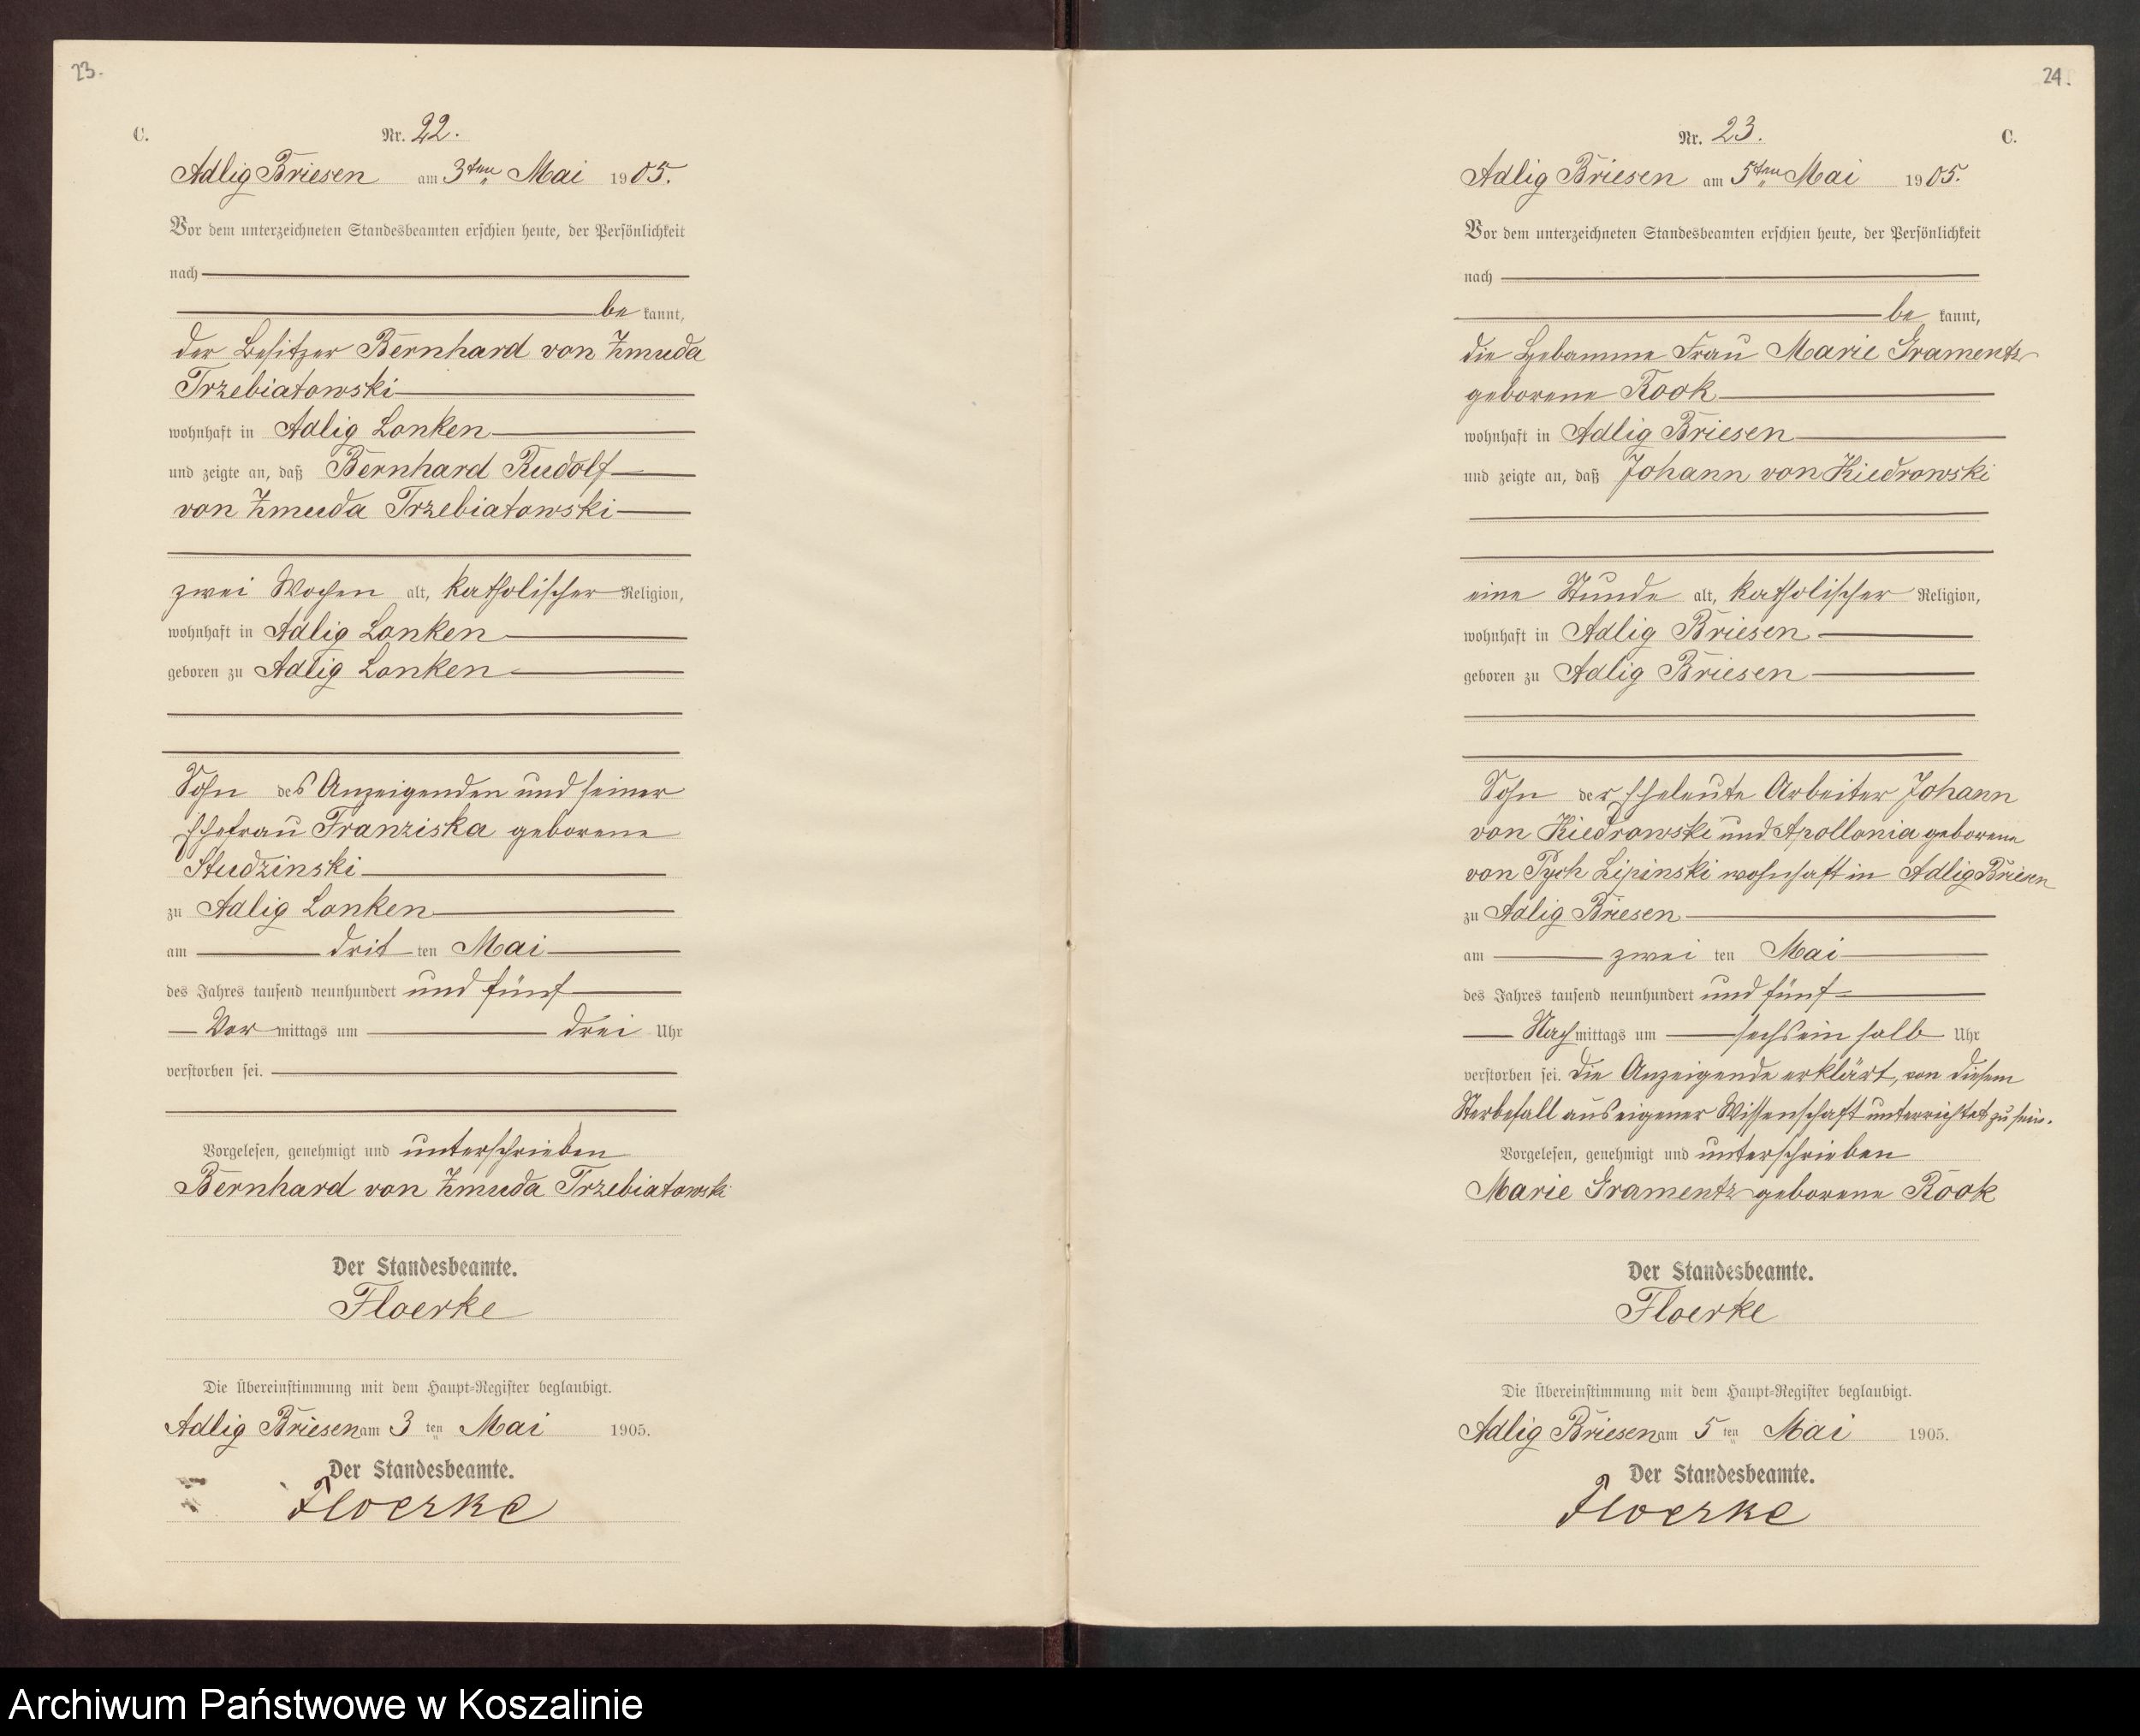 23.
C.
Nr. 22.
Adlig Briesen am 3ten Mai 1905.
Vor dem unterzeichneten Standesbeamten erschien heute, der Persönlichkeit
nach
be kannt,
der Besitzer Bernhard von Zmuda
Trzebiatowski
wohnhaft in Adlig Lonken
und zeigte an, daß Bernhard Rudolf
von Zmuda Trzebiatowski
zwei Wochen alt, katholischer Religion,
wohnhaft in Adlig Lonken
geboren zu Adlig Lonken
Sohn des Anzeigenden und seiner
Ehefrau Franziska geborene
Studzinski
zu Adlig Lonken
am drit ten Mai
des Jahres tausend neunhundert und fünf
Vor mittags um drei Uhr
verstorben sei.
Vorgelesen, genehmigt und unterschrieben
Bernhard von Zmuda Trzebiatowski
Der Standesbeamte.
Floerke
Die Übereinstimmung mit dem Haupt-Register beglaubigt.
Adlig Briesen am 3 ten Mai 1905.
Der Standesbeamte.
Floerke
24.
Nr. 23.
C.
Adlig Briesen am 5ten Mai 1905.
Vor dem unterzeichneten Standesbeamten erschien heute, der Persönlichkeit
nach
be kannt,
die Hebamme Frau Marie Gramentz
geborene Rook
wohnhaft in Adlig Briesen
und zeigte an, daß Johann von Kiedrowski
eine Stunde alt, katholischer Religion,
wohnhaft in Adlig Briesen
geboren zu Adlig Briesen
Sohn der Eheleute Arbeiter Johann
von Kiedrowski und Apollonia geborene
von Pych Lipinski wohnhaft in Adlig Briesen
zu Adlig Briesen
am zwei ten Mai
des Jahres tausend neunhundert und fünf
Nach mittags um sechs ein halb Uhr
verstorben sei. Die Anzeigende erklärt, von diesem
Sterbefall aus eigener Wissenschaft unterrichtet zu sein.
Vorgelesen, genehmigt und unterschrieben
Marie Gramentz geborene Rook
Der Standesbeamte.
Floerke
Die Übereinstimmung mit dem Haupt-Register beglaubigt.
Adlig Briesen am 5 ten Mai 1905.
Der Standesbeamte.
Floerke
Archiwum Państwowe w Koszalinie